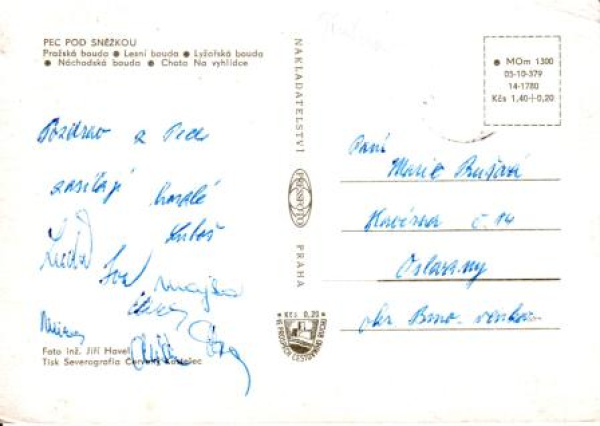 PEC POD SNĚŽKOU
Pražská bouda ● Lesní bouda ● Lyžařská bouda
● Náchodská bouda ● Chata Na vyhlídce
Pozdrav z Pece
zasílají
Luboš
Iva Majka
Foto inž. Jiří Havel
Tisk Severografia Červený Kostelec
NAKLADATELSTVÍ
PRESSFOTO
PRAHA
Kčs 0,20
VE PROSPĚCH CESTOVNÍHO RUCHU
● MOm 1300
05-10-379
14-1780
Kčs 1,40+0,20
Paní
Marie
Kavérna č. 14
Oslavany
okr. Brno-venkov